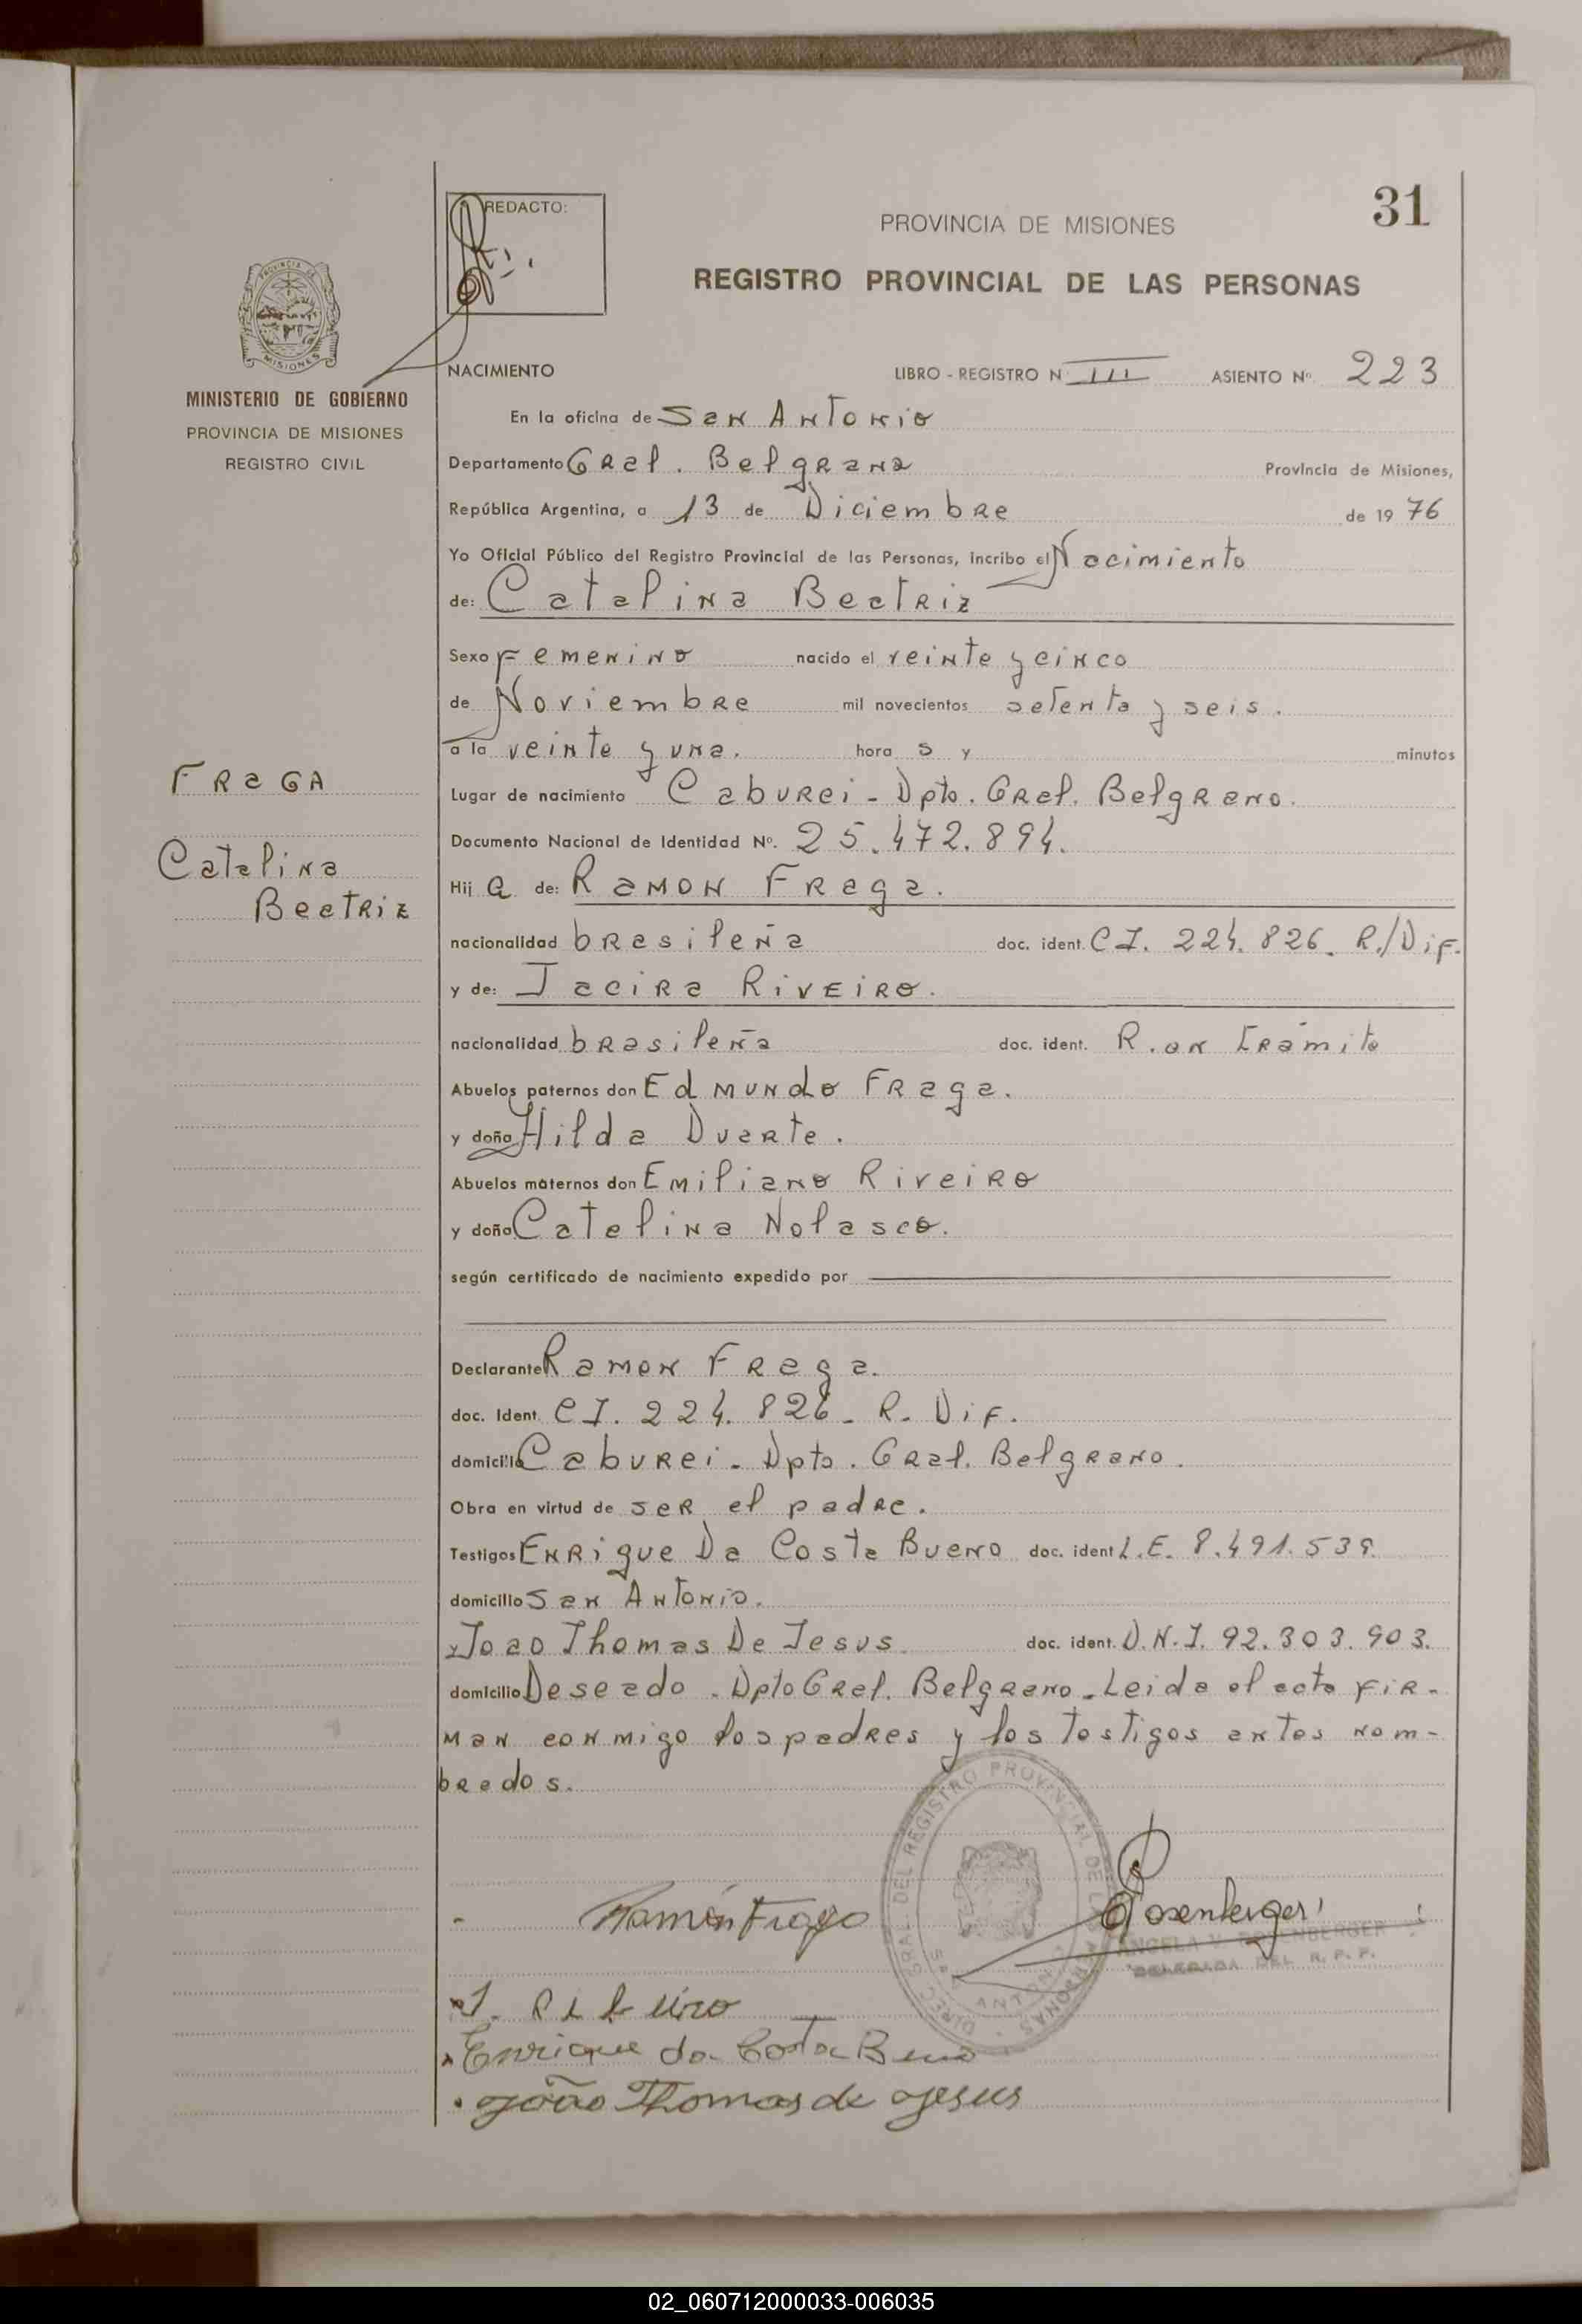 31
REDACTO:
PROVINCIA DE MISIONES
REGISTRO PROVINCIAL DE LAS PERSONAS
PROVINCIA DE
MISIONES
MINISTERIO DE GOBIERNO
PROVINCIA DE MISIONES
REGISTRO CIVIL
NACIMIENTO LIBRO - REGISTRO N III ASIENTO Nº. 223
En la oficina de San Antonio
Departamento Gral. Belgrano Provincia de Misiones,
República Argentina, a 13 de Diciembre de 19 76
Yo Oficial Público del Registro Provincial de las Personas, incribo el Nacimiento
de: Catalina Beatriz
Sexo Femenino nacido el veinte y cinco
de Noviembre mil novecientos setenta y seis.
a la veinte y una. hora s y minutos
Lugar de nacimiento Caburei - Dpto. Gral. Belgrano.
Documento Nacional de Identidad Nº. 25.472.894.
Hij a de: Ramon Fraga.
nacionalidad brasileña doc. ident. CI. 224.826. R./Dif.
y de: Jacira Riveiro.
nacionalidad brasileña doc. ident. R. en trámite
Abuelos paternos don Edmundo Fraga.
y doña Hilda Duarte.
Abuelos maternos don Emiliano Riveiro
y doña Catalina Nolasco.
según certificado de nacimiento expedido por
Declarante Ramon Fraga.
doc. Ident. CI. 224.826 - R. Dif.
domicilio Caburei - Dpto. Gral. Belgrano.
Obra en virtud de ser el padre.
Testigos Enrique Da Costa Bueno doc. ident L.E. 8.491.539.
domicilio San Antonio.
y Joao Thomas De Jesus doc. ident. D.N.I. 92.303.903.
domicilio Deseado. Dpto Gral. Belgrano. Leida el acta fir-
man conmigo los padres y los testigos antes nom-
brados.
FRAGA
Catalina
Beatriz
Ramón Fraga
Rosenberger
ANGELA V. ROSENBERGER
DELEGADA DEL R. P. P.
DIREC. GRAL. DEL REGISTRO PROVINCIAL DE LAS PERSONAS
SAN ANTONIO
J. Ribeiro
Enrique da Costa Bueno
João Thomas de Jesus
02_060712000033-006035